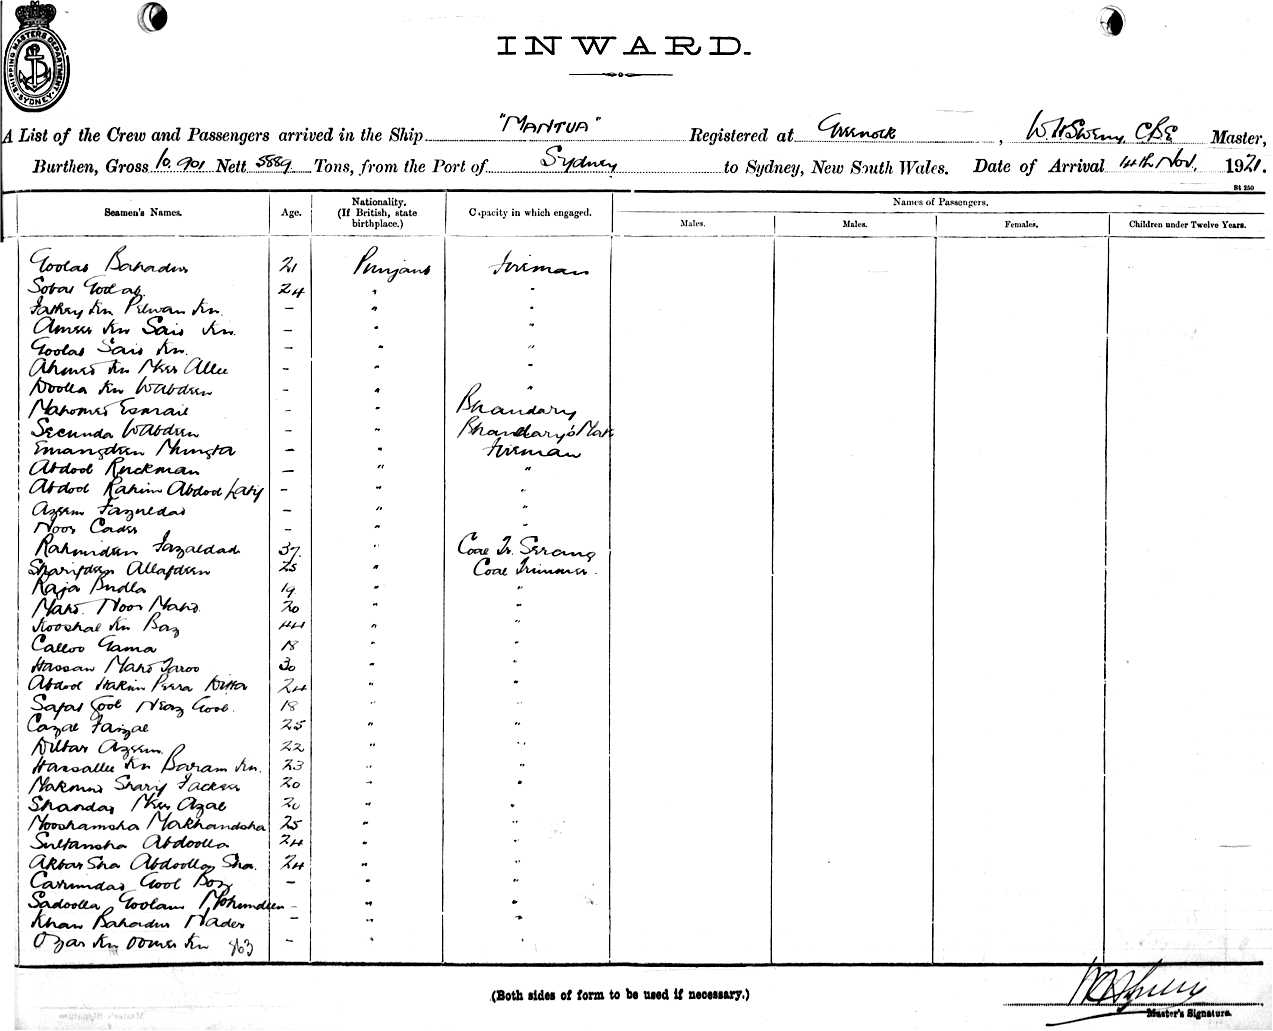 SHIPPING MASTERS DEPARTMENT SYDNEY
INWARD.
A List of the Crew and Passengers arrived in the Ship "MANTUA" Registered at Greenock, W. H Sweny, CBE Master,
Burthen, Gross 10,901 Nett 5889 Tons, from the Port of Sydney to Sydney, New South Wales. Date of Arrival 14th Nov, 1921.
Bt 250
Seamen's Names. Age. Nationality. (If British, state birthplace.) Capacity in which engaged. Names of Passengers.
Males. Males. Females. Children under Twelve Years.
Goolab Bahadur 21 Punjaub Fireman
Sobar Golab 24 " "
Fatkey Kn Pelwan Kn. — " "
Ameer Kn Said Kn. — " "
Goolab Said Kn. — " "
Ahmed Kn Meer Allee — " "
Doolla Kn Wabdeen — " "
Mahomed Esmail — " Bhandary
Secunda Wabdeen — " Bhandary's Mate
Emamdeen Mungta — " Fireman
Abdool Ruckman — " "
Abdool Rahim Abdool Laty — " "
Azeem Fazueldad — " "
Noor Cader — " "
Rahmideen Fazaldad 37. " Coal Tr. Serang
Sharifdeen Allafdeen 25 " Coal Trimmer.
Raja Budla 19 " "
Mahd. Noor Mahd. 20 " "
Kooshal Kn Baz 44 " "
Calloo Gama 18 " "
Hassan Mahd Taroo 30 " "
Abdool Hakim Peera Ditta 24 " "
Safar Gool Neaz Gool. 18 " "
Cazal Faizal 25 " "
Dilbar Azeem. 22 " "
Hassallee Kn Bairam Kn. 23 " "
Mahomed Sharif Fackeer 20 " "
Shandad Meer Azal 20 " "
Mooshamsha Makhandsha 25 " "
Sultansha Abdoolla 24 " "
Akbar Sha Abdoolla Sha. 24 " "
Carimdad Gool Boz — " "
Sadoolla Goolam Mohundeen — " "
Khan Bahadur Nader — " "
Ozar Kn Oomer Kn 963 — " "
(Both sides of form to be used if necessary.)
W H Sweny
Master's Signature.